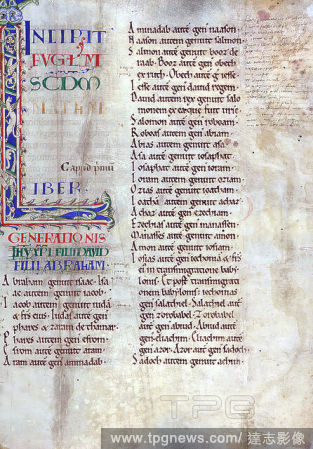 INCIPIT
EVGLM
SCDM
MATHEV
Cap prim
LIBER
GENERATIONIS
IHV XPI FILII DAVID
FILII ABRAHAM
Abraham genuit isaac. Isa
ac autem genuit iacob.
Iacob autem genuit iudā
& frs eius. Iudas autē gen
phares & zaram de thamar.
Phares autem gen esrom.
Esrom autē genuit aram.
Aram autē gen aminadab.
Aminadab autē gen naason.
Naason autem genuit salmon.
Salmon autē genuit booz de
raab. Booz autē gen obeth
ex ruth. Obeth autē g iesse.
Iesse autē gen dauid regem.
Dauid autem rex genuit salo
monem ex ea que fuit urie.
Salomon autē gen roboam.
Roboas autem gen abiam.
Abias autem genuit asa.
Asa autē genuit iosaphat.
Iosaphat autē gen ioram.
Ioram autem genuit oziam.
Ozias autem genuit ioatham.
Ioathā autem genuit achaz.
Achaz autē gen ezechiam.
Ezechias autē gen manassen.
Manasses autē genuit amon.
Amon autē genuit iosiam.
Iosias autē gen iechoniā & frs
ei in transmigratione baby
lonis. Et post transmigrati
onem babylonis: iechonias
gen salathiel. Salathiel autē
gen zorobabel. Zorobabel
autē gen abiud. Abiud autē
gen eliachim. Eliachim autē
gen azor. Azor autē gen sadoch.
Sadoch autem genuit achim.
TPG
www.tpgnews.com/ 達志影像